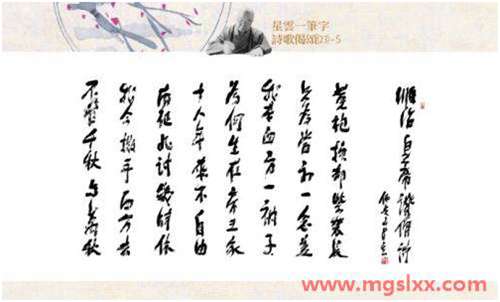 星雲一筆字
詩歌偈頌(23)-5
順治皇帝讚僧詩
黃袍換却紫袈裟
只為當初一念差
我本西方一衲子
為何生在帝王家
十八年來不自由
南征北討幾時休
我今撒手西方去
不管千秋与萬秋
www.mgslxx.com